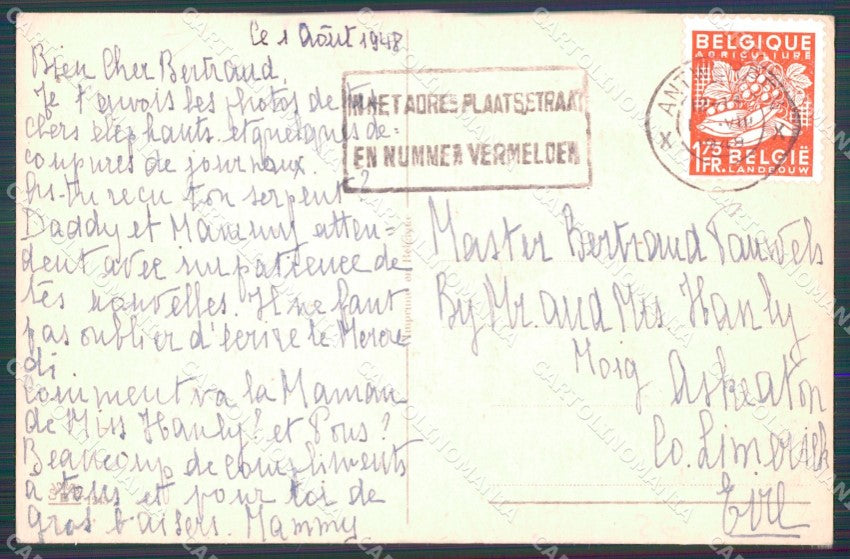 Le 1 Août 1948
Bien Cher Bertrand,
Je t'envois les photos de tes
chers éléphants et quelques dé-
coupures de journaux.
As-tu reçu ton serpent?
Daddy et Mammy atten-
dent avec impatience de
tes nouvelles. Il ne faut
pas oublier d'écrire le Mercre-
di
Comment va la Maman
de Miss Hanly? et Tous?
Beaucoup de compliments
à tous et pour toi de
Gros baisers. Mammy
IN HET ADRES PLAATS, STRAAT
EN NUMMER VERMELDEN
BELGIQUE
AGRICULTURE
1.75
1FR.
BELGIË
LANDBOUW
Master Bertrand Pauwels
By Mr. and Mrs Hanly
Moig
Askeaton
Co. Limerick
Eire
CARTOLINOMANIA